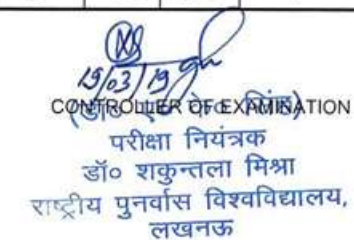 19/03/19
CONTROLLER OF EXAMINATION
सिंह)
परीक्षा नियंत्रक
डॉ० शकुन्तला मिश्रा
राष्ट्रीय पुनर्वास विश्वविद्यालय,
लखनऊ